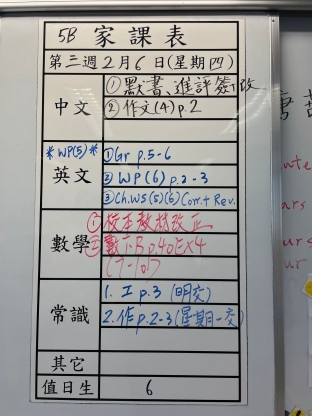 5B 家課表
第三週2月6日(星期四)
中文
①默書、進評簽+改
②作文(4)p.2
*WP(5)*
英文
①Gr p.5-6
②WP(6)p.2-3
③Ch.WS(5)(6)Corr.+Rev.
數學
①校本教材改正
②數下B p.40 Ex4
(7-10)
常識
1. 工p.3 (明交)
2. 作p.2-3(星期一交)
其它
值日生 6